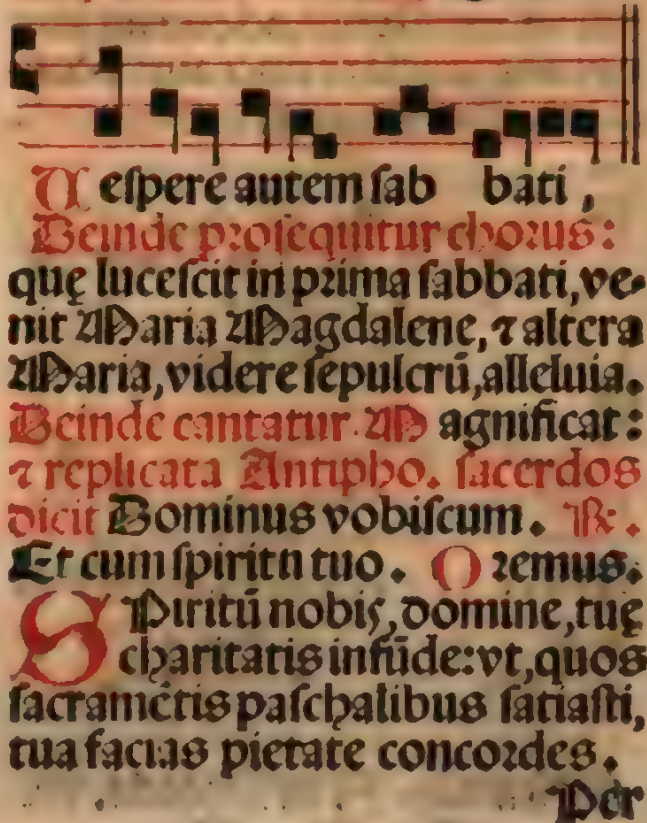 Ueſpere autem ſab bati,
Deinde proſequitur chorus:
quę luceſcit in prima ſabbati, ve-
nit Maria Magdalene, ⁊ altera
Maria, videre ſepulcrū, alleluia.
Deinde cantatur. Magnificat:
⁊ replicata Antipho. ſacerdos
dicit Dominus vobiſcum. ℟.
Et cum ſpiritu tuo. Oremus.
SPiritū nobis, domine, tuę
charitatis infūde: vt, quos
ſacramētis paſchalibus ſatiaſti,
tua facias pietate concordes.
Per